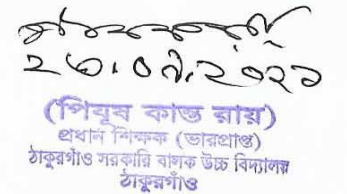 ২৩.০৯.২০২১
(পিযূষ কান্ত রায়)
প্রধান শিক্ষক (ভারপ্রাপ্ত)
ঠাকুরগাঁও সরকারি বালক উচ্চ বিদ্যালয়
ঠাকুরগাঁও